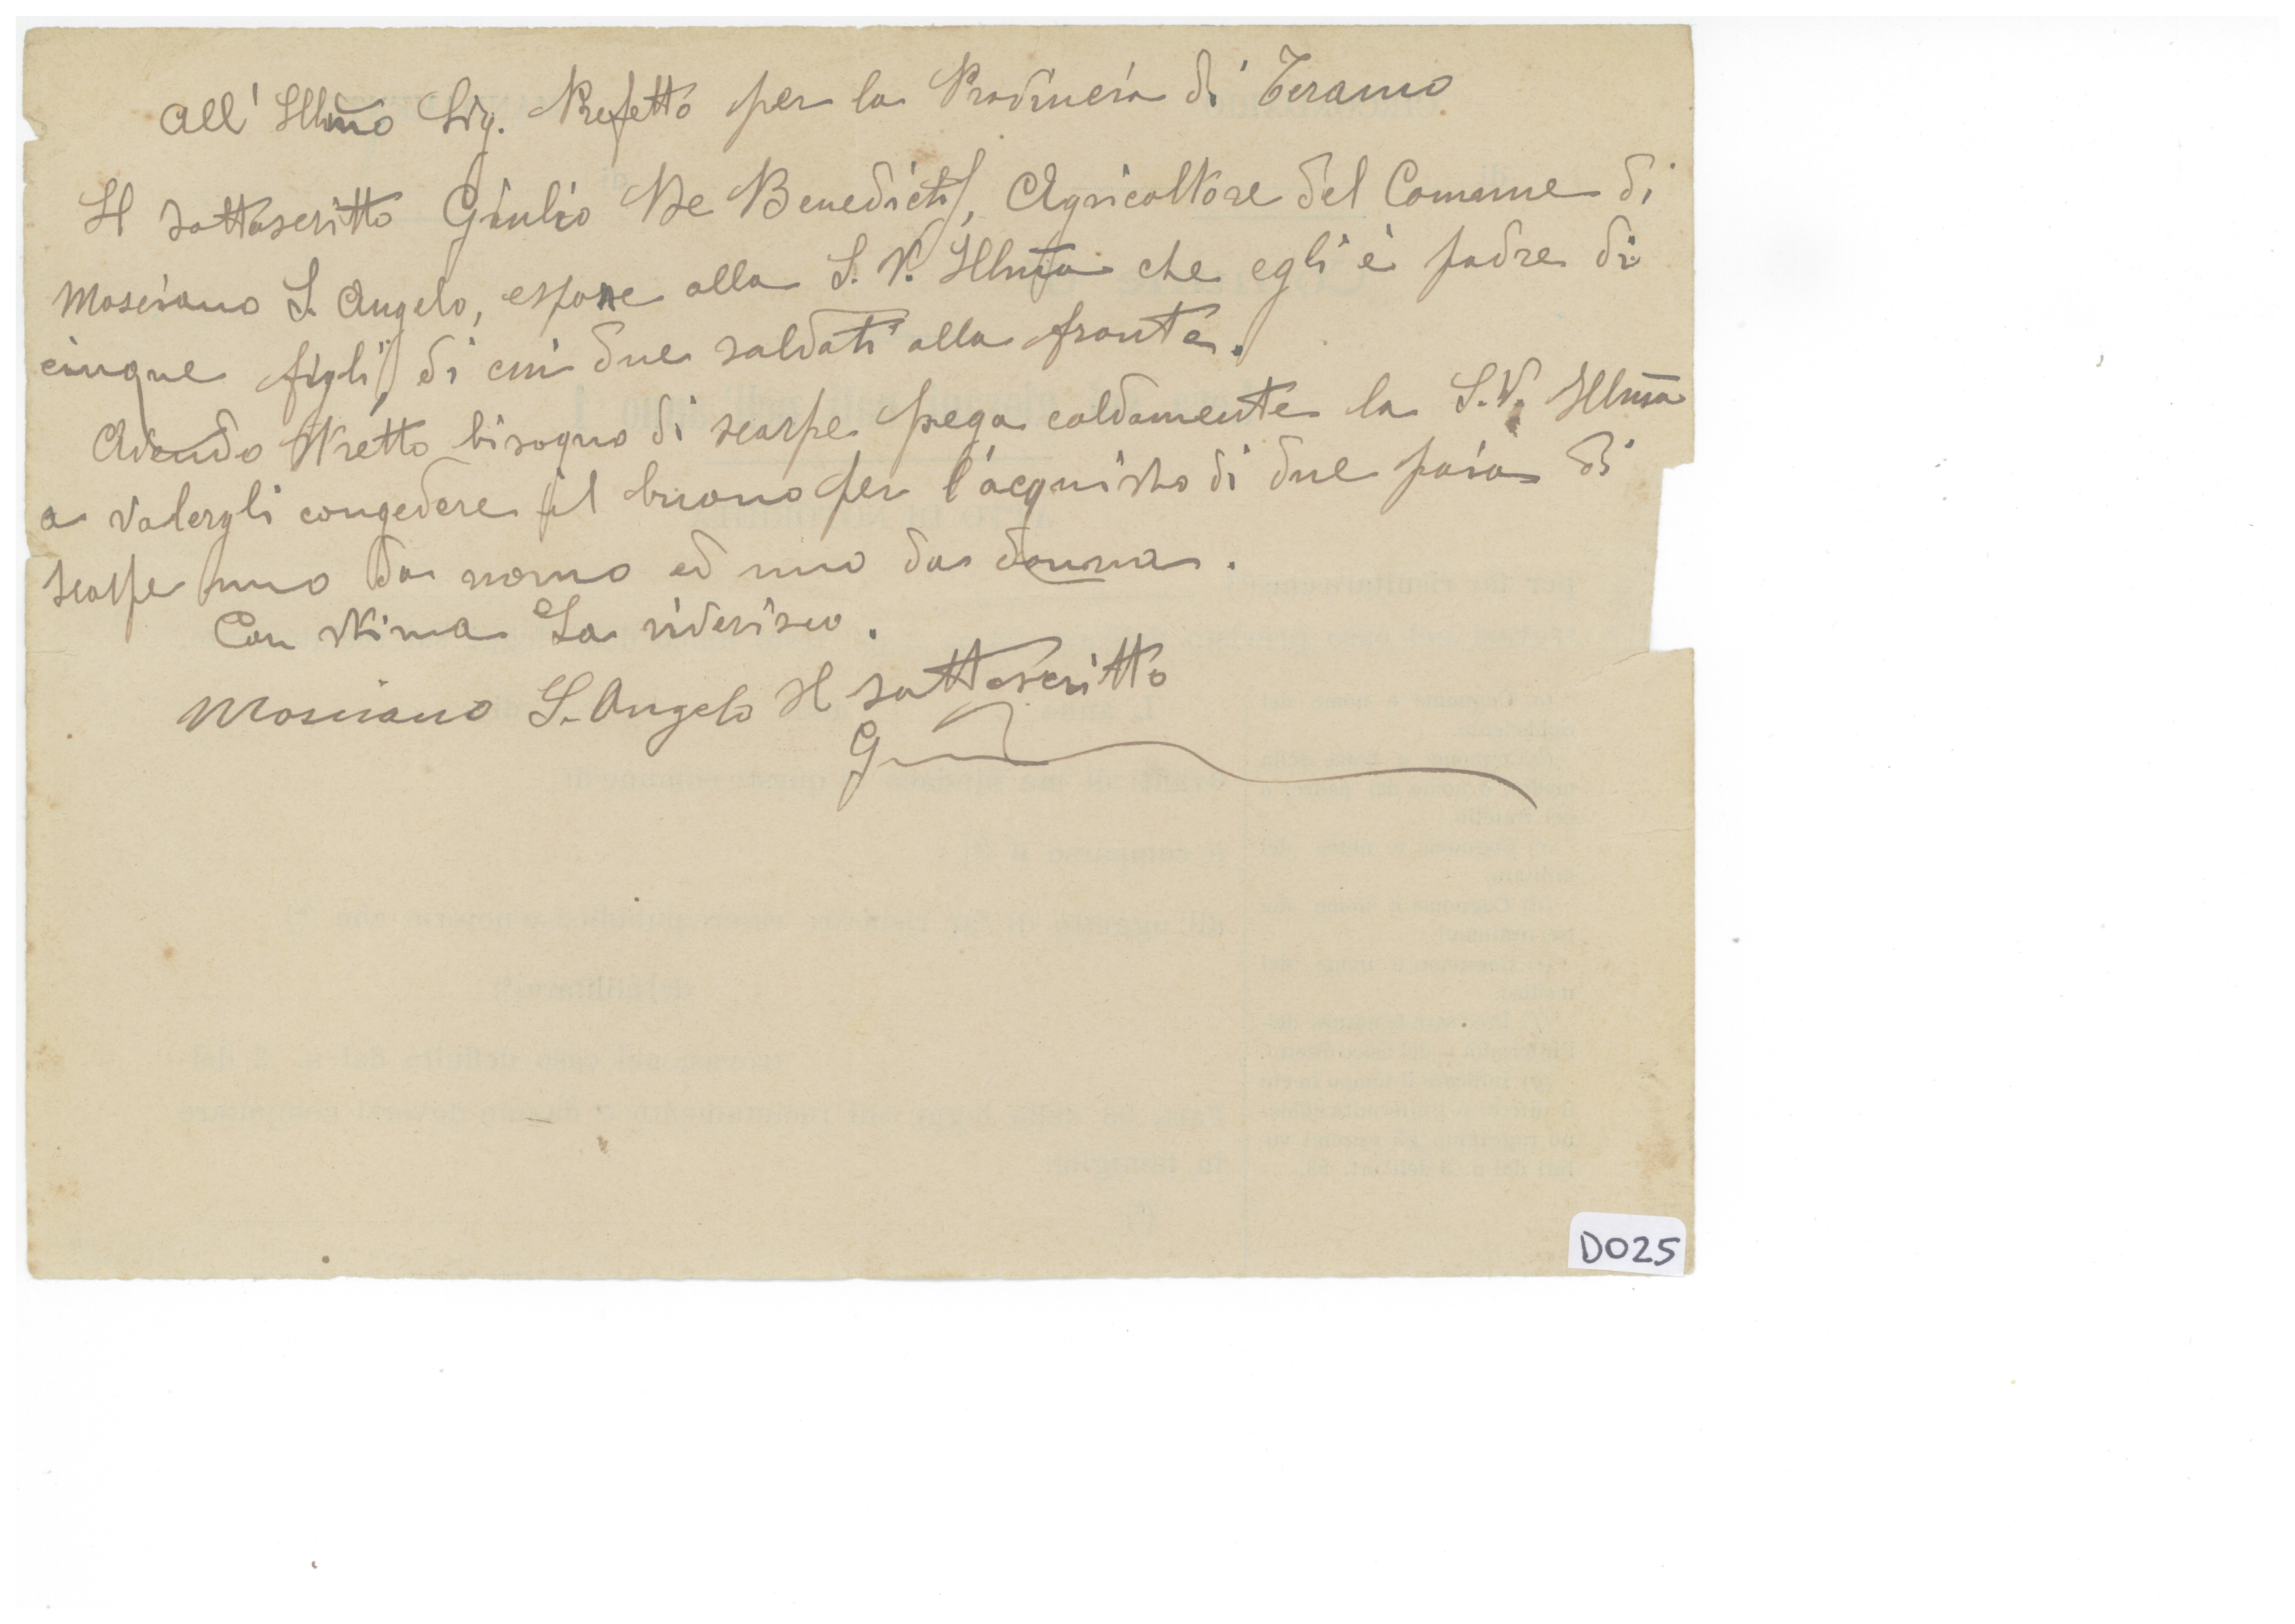 All' Illmo Sig. Prefetto per la Provincia di Teramo
Il sottoscritto Giulio De Benedictis, Agricoltore del Comune di
Mosciano S. Angelo, espone alla S. V. Illma che egli è padre di
cinque figli, di cui due soldati alla fronte.
Avendo stretto bisogno di scarpe prega caldamente la S. V. Illma
a volergli congedere il buono per l'acquisto di due paia di
scarpe uno da uomo ed uno da donna.
Con stima La riverisco.
Mosciano S. Angelo Il sottoscritto
D025